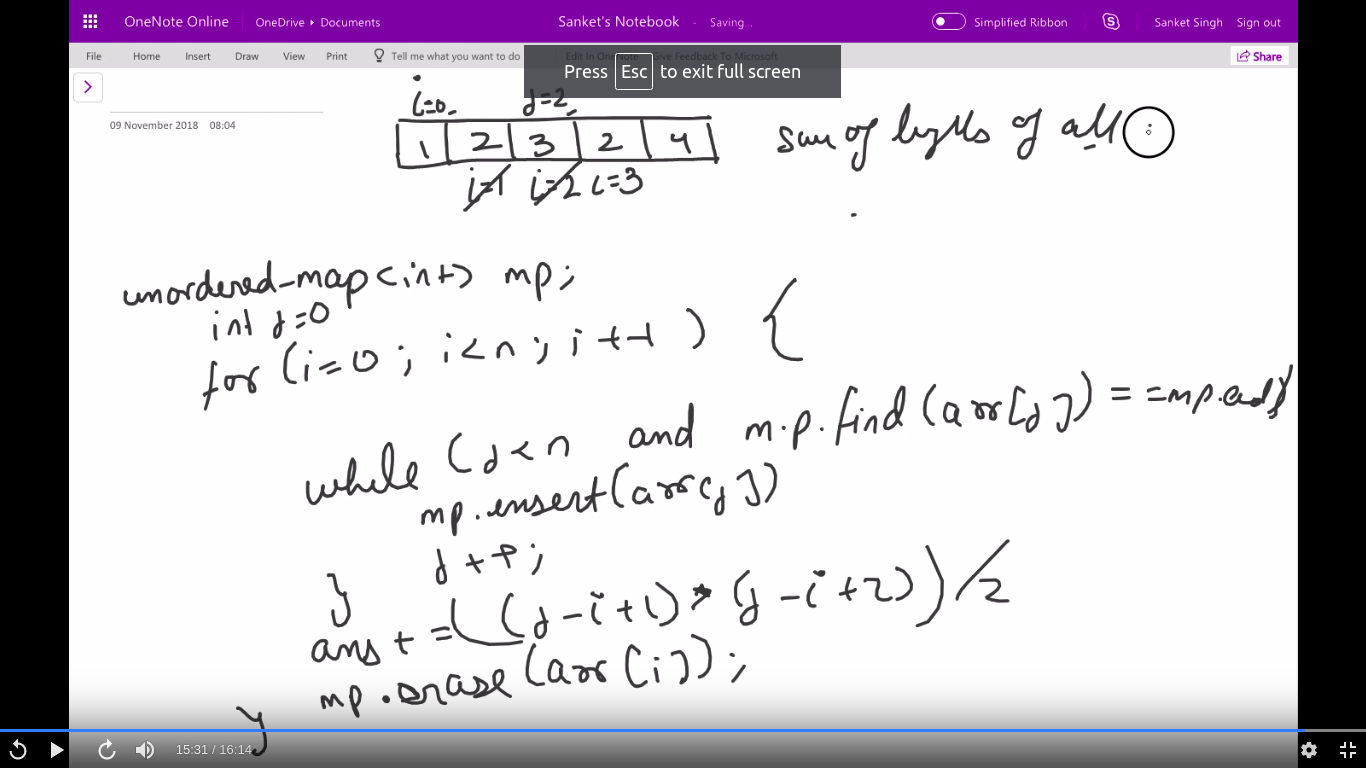 OneNote Online OneDrive ▸ Documents Sanket's Notebook - Saving... Simplified Ribbon Sanket Singh Sign out
File Home Insert Draw View Print Tell me what you want to do Edit In OneNote Give Feedback To Microsoft Share
Press Esc to exit full screen
i=0 j=2
09 November 2018 08:04
1 2 3 2 4 sum of of all
i=1 i=2 i=3
unordered_map<int> mp;
int j=0
for (i=0; i<n; i++) {
while (j<n and m.p.find(arr[j]) == mp.end()
mp.insert(arr[j])
j++;
}
ans+=((j-i+1)*(j-i+2))/2
mp.erase(arr[i]);
}
15:31 / 16:14